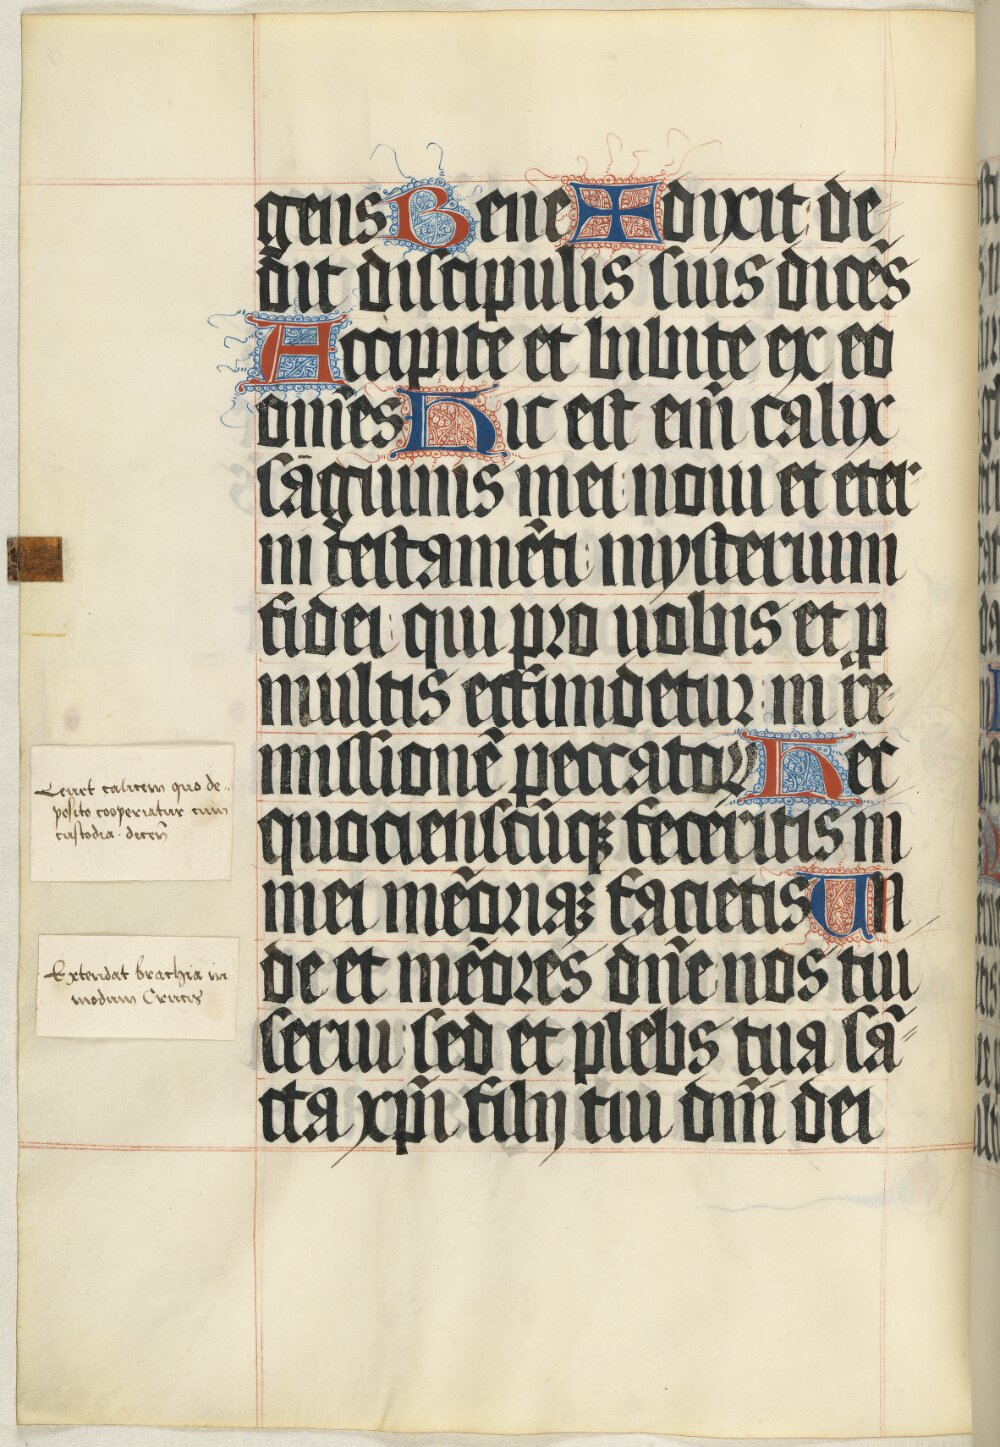 gens Bene✠dixit de
dit discipulis suis dicēs
Accipite et bibite ex eo
om̄es Hic est eīm calix
sāguinis mei noui et eter
ni testamēti mysterium
fidei qui pro uobis et p̄
multis effundetur in re
missionē peccatoꝝ Hec
quociensc̄ūqꝫ feceritis in
mei mēoriaꝫ facietis Un
de et mēores dn̄e nos tui
serui sed et plebs tua sā
cta xp̄i filij tui dn̄i dei
Leuet calicem quo de
posito cooperiatur cum
custodia dicēn
Extendat brachia in
modum Crucis